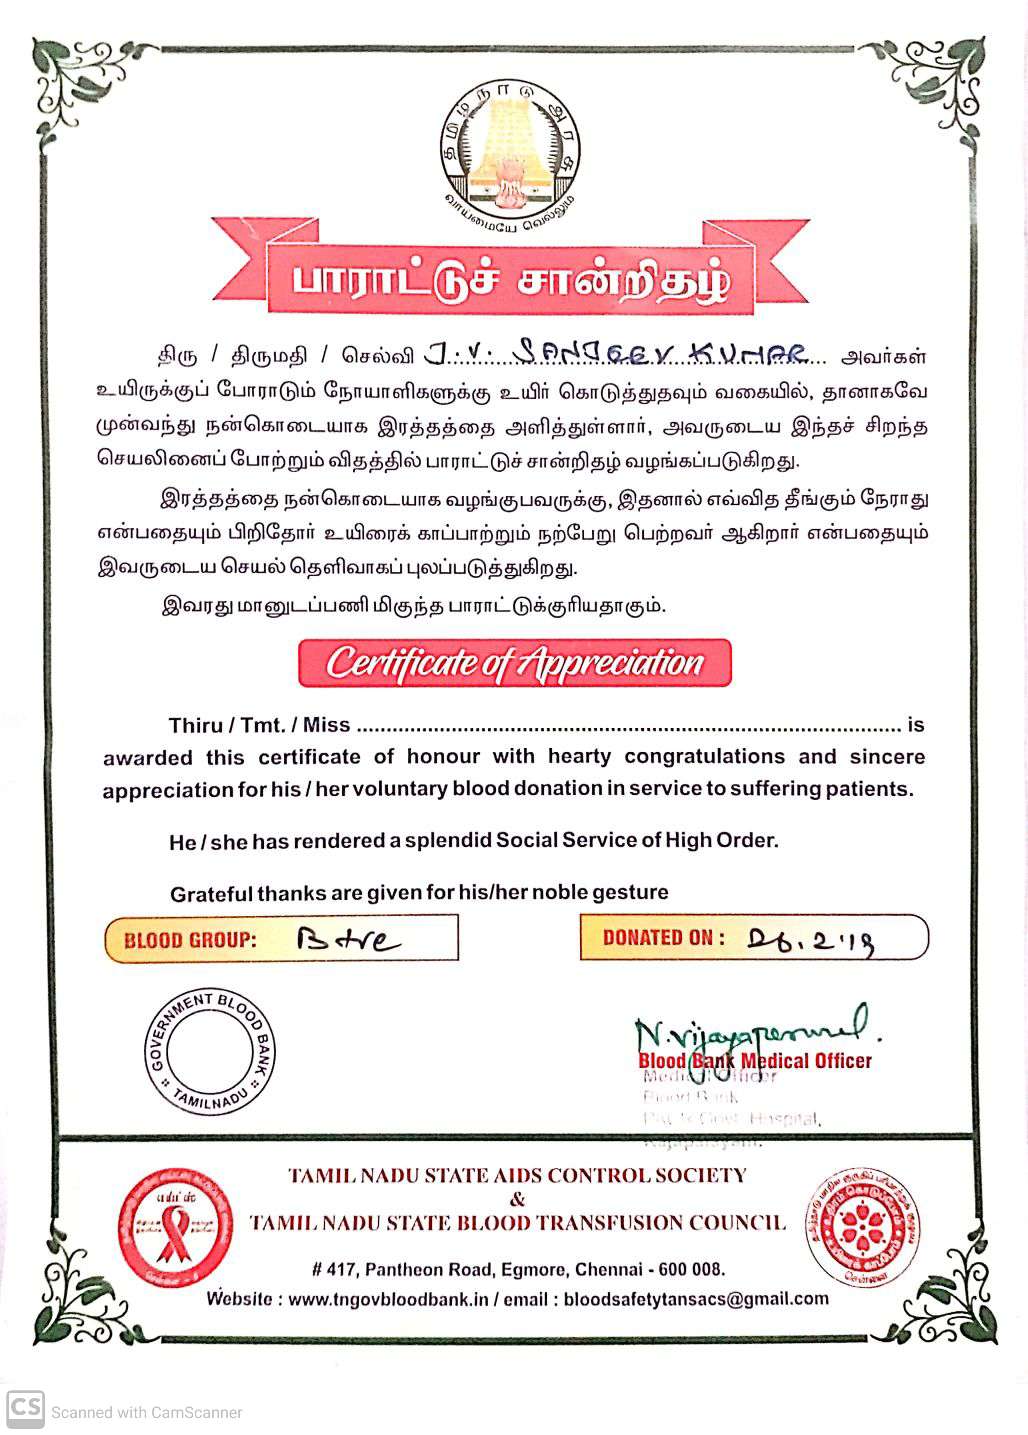 தமிழ்நாடு அரசு
வாய்மையே வெல்லும்
பாராட்டுச் சான்றிதழ்
திரு / திருமதி / செல்வி J.V. SANJEEV KUMAR அவர்கள்
உயிருக்குப் போராடும் நோயாளிகளுக்கு உயிர் கொடுத்துதவும் வகையில், தானாகவே
முன்வந்து நன்கொடையாக இரத்தத்தை அளித்துள்ளார், அவருடைய இந்தச் சிறந்த
செயலினைப் போற்றும் விதத்தில் பாராட்டுச் சான்றிதழ் வழங்கப்படுகிறது.
இரத்தத்தை நன்கொடையாக வழங்குபவருக்கு, இதனால் எவ்வித தீங்கும் நேராது
என்பதையும் பிறிதோர் உயிரைக் காப்பாற்றும் நற்பேறு பெற்றவர் ஆகிறார் என்பதையும்
இவருடைய செயல் தெளிவாகப் புலப்படுத்துகிறது.
இவரது மானுடப்பணி மிகுந்த பாராட்டுக்குரியதாகும்.
Certificate of Appreciation
Thiru / Tmt. / Miss ........................................ is
awarded this certificate of honour with hearty congratulations and sincere
appreciation for his / her voluntary blood donation in service to suffering patients.
He / she has rendered a splendid Social Service of High Order.
Grateful thanks are given for his/her noble gesture
BLOOD GROUP: B+ve DONATED ON : 26.2.19
GOVERNMENT BLOOD BANK
TAMILNADU
N.Vijayaperumal.
Blood Bank Medical Officer
Medical Officer
Blood Bank
Govt. Hospital,
Rajapalayam.
TAMIL NADU STATE AIDS CONTROL SOCIETY
&
TAMIL NADU STATE BLOOD TRANSFUSION COUNCIL
# 417, Pantheon Road, Egmore, Chennai - 600 008.
Website : www.tngovbloodbank.in / email : bloodsafetytansacs@gmail.com
சென்னை
CS Scanned with CamScanner